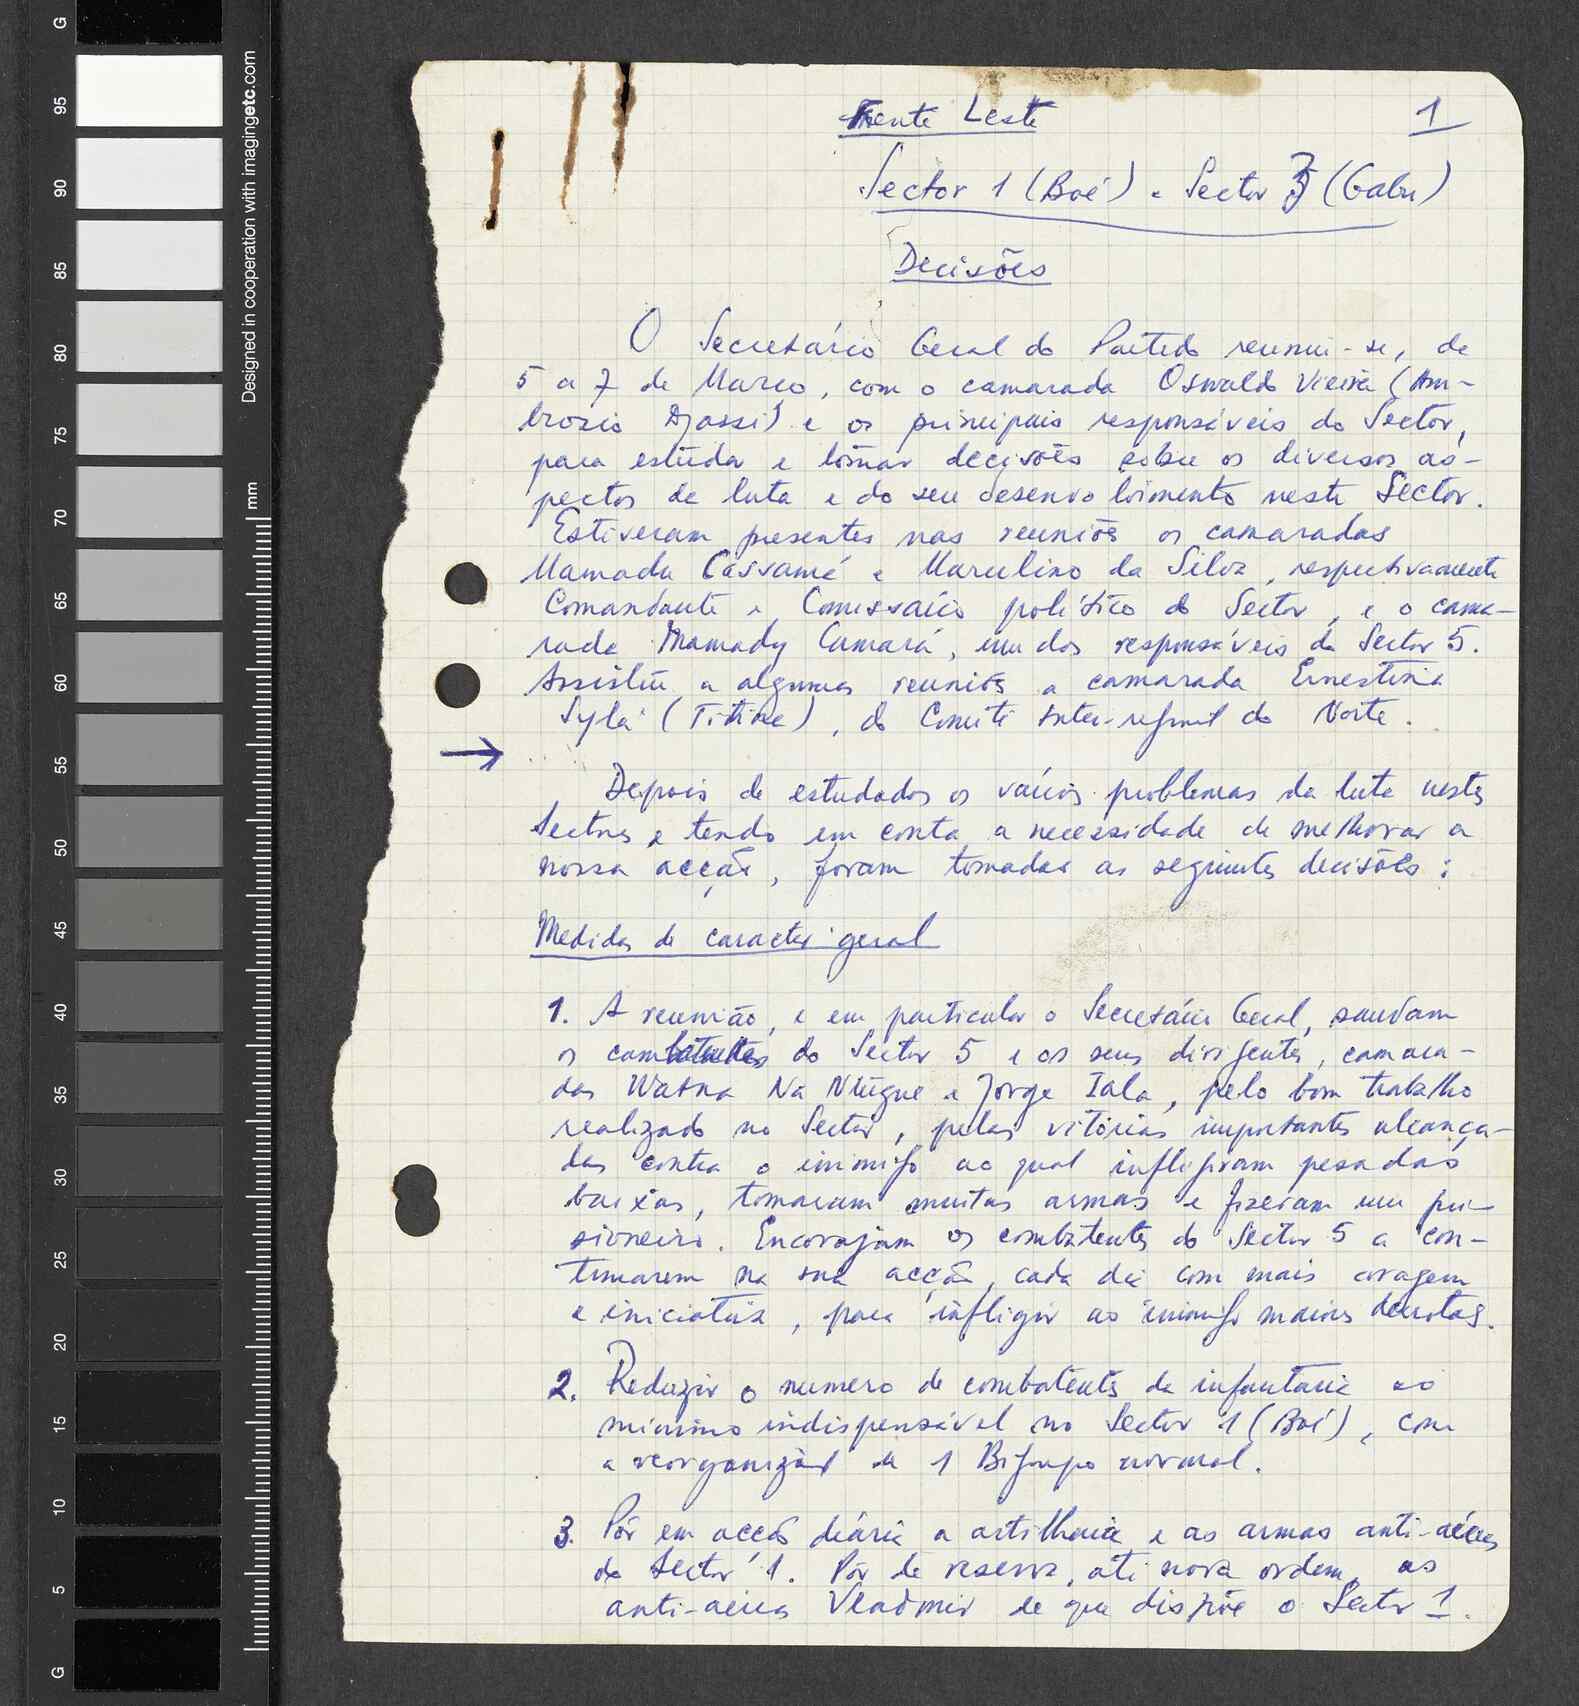 Frente Leste
1
Sector 1 (Boé) e Sector (Gabu)
Decisões
O Secretário Geral do Partido reuniu-se, de
5 a 7 de Março, com o camarada Oswaldo Vieira (Am-
brosio Djassi) e os principais responsáveis do Sector,
para estudar e tomar decisões sobre os diversos as-
pectos da luta e do seu desenvolvimento neste Sector.
Estiveram presentes nas reuniões os camaradas
Mamadu Cassamá e Marcelino da Silva, respectivamente
Comandante e Comissário político do Sector, e o cama-
rada Mamady Camará, um dos responsáveis do Sector 5.
Assistiu a algumas reuniões a camarada Ernestina
Sylá (Titine), do Comité Inter-regional do Norte.
→
Depois de estudados os vários problemas da luta nestes
Sectores e tendo em conta a necessidade de melhorar a
nossa acção, foram tomadas as seguintes decisões:
Medidas de caracter geral
1. A reunião, e em particular o Secretário Geral, saudam
os combatentes do Sector 5 e os seus dirigentes, camara-
das Watna Na Ntugue e Jorge Iala, pelo bom trabalho
realizado no Sector, pelas vitórias importantes alcança-
das contra o inimigo ao qual infligiram pesadas
baixas, tomaram muitas armas e fizeram um pri-
sioneiro. Encorajam os combatentes do Sector 5 a con-
tinuarem na sua acção, cada dia com mais coragem
e iniciativa, para infligir ao inimigo maiores derrotas.
2. Reduzir o numero de combatentes da infantaria ao
minimo indispensável no Sector 1 (Boé), com
a reorganização de 1 Bigrupo normal.
3. Pôr em acção diária a artilharia e as armas anti-aéreas
do Sector 1. Pôr de reserva, até nova ordem, as
anti-aéreas Vladmir de que dispõe o Sector 1.
Designed in cooperation with imagingetc.com
mm
G
95
90
85
80
75
70
65
60
55
50
45
40
35
30
25
20
15
10
5
G